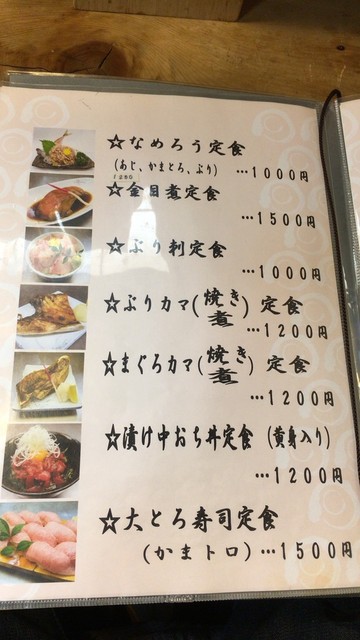 ☆なめろう定食
(あじ、かまとろ、ぶり) …1000円
☆金目煮定食
…1500円
☆ぶり刺定食
…1000円
☆ぶりカマ(焼き煮) 定食
…1200円
☆まぐろカマ(焼き煮) 定食
…1200円
☆漬け中おち丼定食 (黄身入り)
…1200円
☆大とろ寿司定食
(かまトロ) …1500円